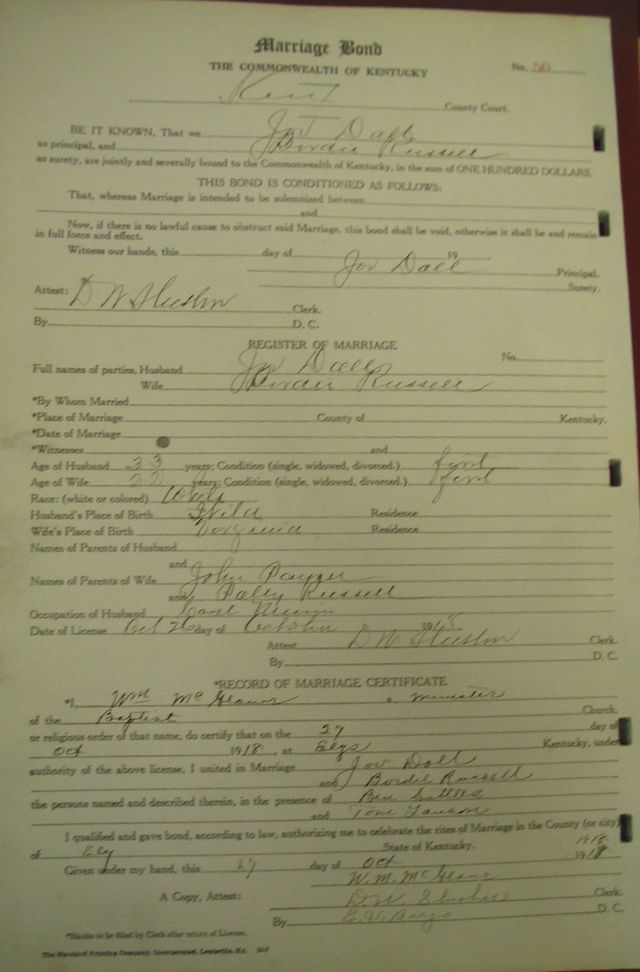 Marriage Bond
THE COMMONWEALTH OF KENTUCKY
No. 50
County Court.
BE IT KNOWN, That we Joe Dall
as principal, and Birdie Russell
as surety, are jointly and severally bound to the Commonwealth of Kentucky, in the sum of ONE HUNDRED DOLLARS.
THIS BOND IS CONDITIONED AS FOLLOWS:
That, whereas Marriage is intended to be solemnized between
and
Now, if there is no lawful cause to obstruct said Marriage, this bond shall be void, otherwise it shall be and remain
in full force and effect.
Witness our hands, this day of 19
Joe Dall Principal.
Surety.
Attest: D W Slusher Clerk.
By D. C.
REGISTER OF MARRIAGE
No.
Full names of parties, Husband Joe Dall
Wife Birdie Russell
*By Whom Married
*Place of Marriage County of Kentucky.
*Date of Marriage
*Witnesses and
Age of Husband 33 years; Condition (single, widowed, divorced.) first
Age of Wife 22 years; Condition (single, widowed, divorced.) first
Race: (white or colored) White
Husband's Place of Birth Residence
Wife's Place of Birth Virginia Residence
Names of Parents of Husband
and
Names of Parents of Wife John
and Russell
Occupation of Husband Coal
Date of License Oct 26 day of October 1918
Attest D W Slusher Clerk.
By D. C.
*RECORD OF MARRIAGE CERTIFICATE
*I, Wm a minister
of the Baptist Church,
or religious order of that name, do certify that on the 27 day of
Oct 1918, at Elys Kentucky, under
authority of the above license, I united in Marriage Joe Dall
and Birdie Russell
the persons named and described therein, in the presence of Ben
and Tom
I qualified and gave bond, according to law, authorizing me to celebrate the rites of Marriage in the County (or city)
of Ely State of Kentucky. 1918
Given under my hand, this 27 day of Oct 1918
W. M.
A Copy, Attest: D. W. Slusher Clerk.
By D. C.
*Blanks to be filled by Clerk after return of License.
The Standard Printing Company, Incorporated, Louisville, Ky.